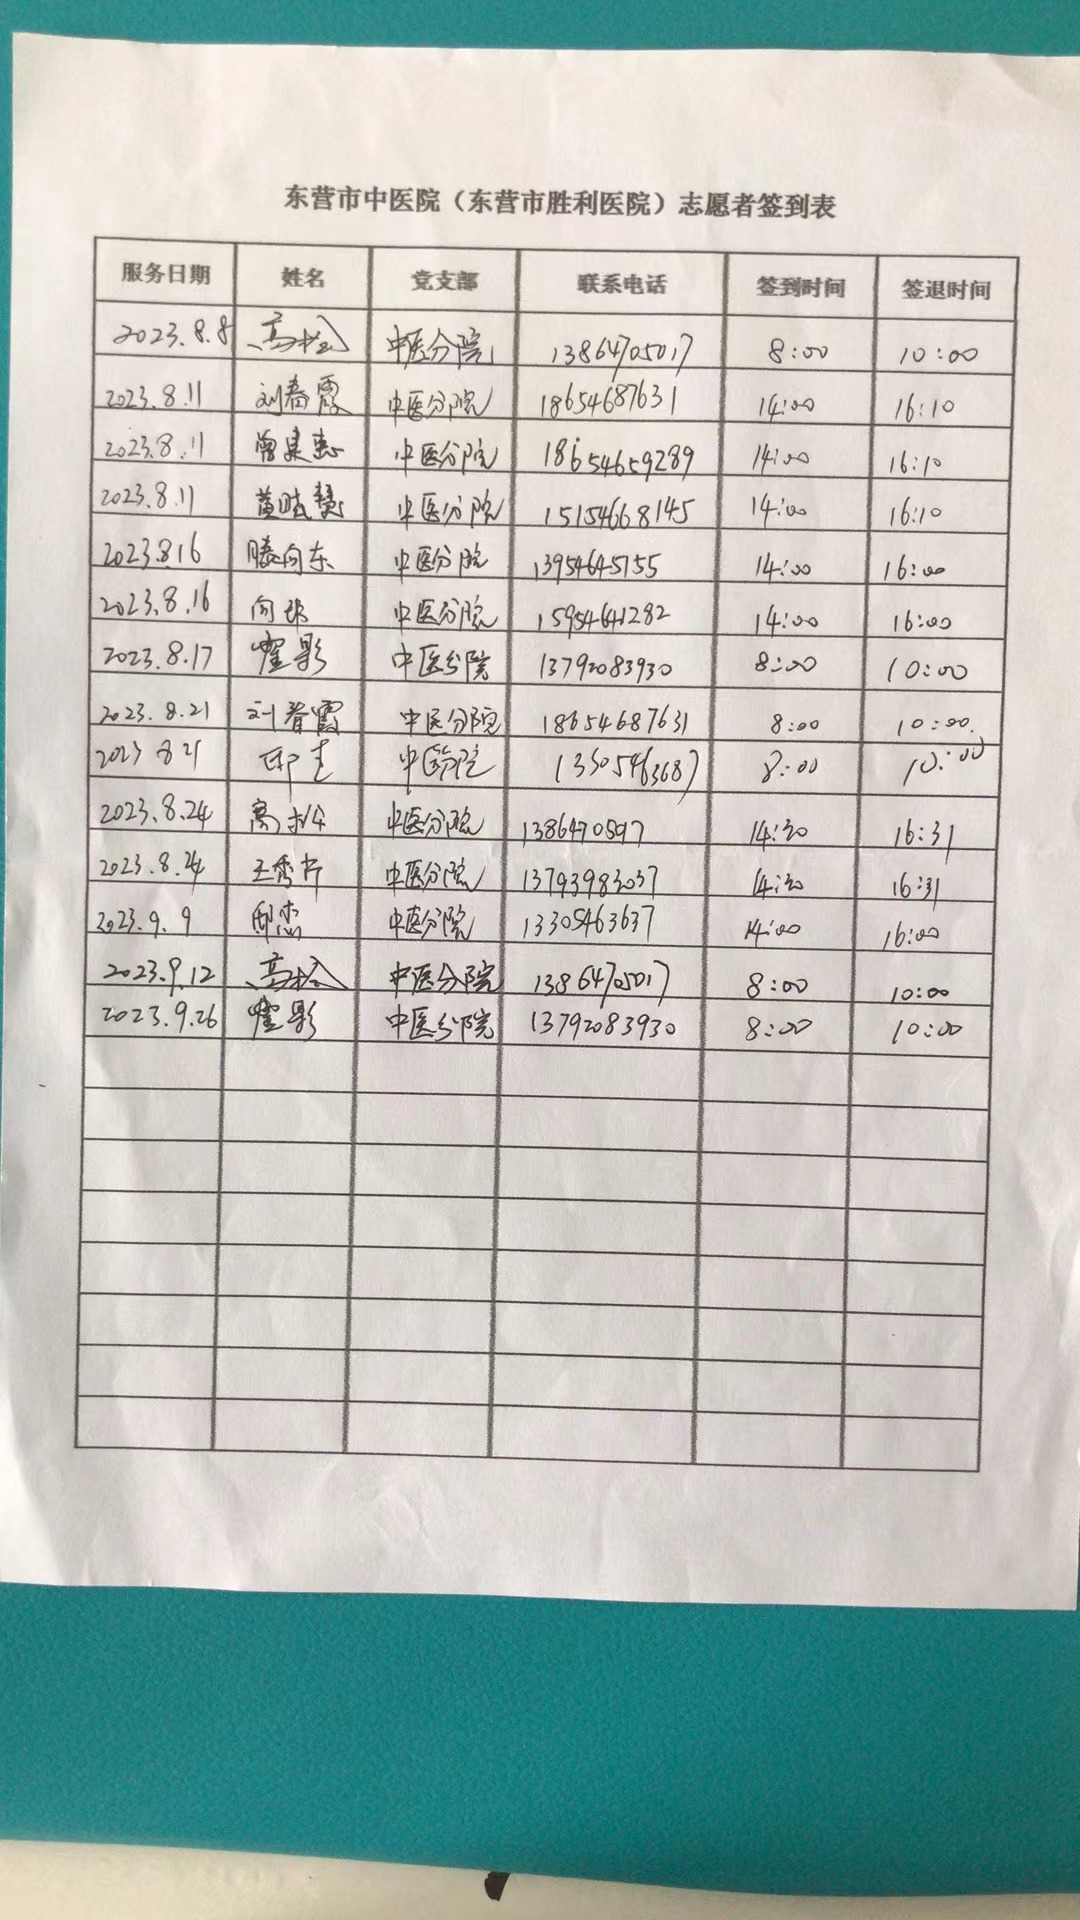 东营市中医院（东营市胜利医院）志愿者签到表
服务日期 姓名 党支部 联系电话 签到时间 签退时间
2023.8.8 高 中医分院 13864705017 8:00 10:00
2023.8.11 刘春霞 中医分院 18654687631 14:00 16:10
2023.8.11 曾建惠 中医分院 18654659289 14:00 16:10
2023.8.11 黄 慧 中医分院 15154668145 14:00 16:10
2023.8.16 滕向东 中医分院 13954645755 14:00 16:00
2023.8.16 向 中医分院 15954641282 14:00 16:00
2023.8.17 霍影 中医分院 13792083930 8:00 10:00
2023.8.21 刘春霞 中医分院 18654687631 8:00 10:00
2023 8 21 中医分院 8:00 10:00
2023.8.24 高 中医分院 14:30 16:31
2023.8.24 王秀 中医分院 13793983037 14:30 16:31
2023.9.9 邸杰 中医分院 13305463637 14:00 16:00
2023.9.12 高 中医分院 13864705017 8:00 10:00
2023.9.26 霍影 中医分院 13792083930 8:00 10:00